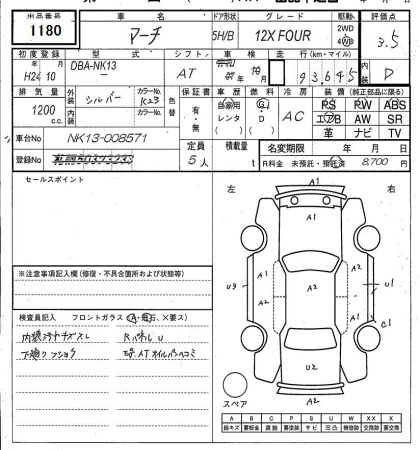 出品番号 車名 ドア形状 グレード 駆動 評価点
1180 マーチ 5H/B 12X FOUR 2WD 4WD 3.5
初度登録 型式 シフト 車検 走行 (km・マイル) 内装
H24年 10月 DBA-NK13 AT 年 月 93,645 D
排気量 外装 シルバー カラーNo. K23 色替 保証書 車歴 燃料 冷房 装備 (純正部品に限る)
1200 c.c. 内装 カラーNo. 有・無 自家用 レンタ G・D AC PS PW ABS
エアB AW SR
革 ナビ TV
車台No NK13-008571 定員 積載量 名変期限 年 月 日
登録No 5人 t R料金 未預託・預託済 8,700 円
セールスポイント
左 右
A1
A1
U9 A1 A2 A2 A1 U1
A2
C1
U2
スペア A2
※注意事項記入欄 (修復・不具合箇所および状態等)
検査員記入欄 フロントガラス (A・飛石、×要ス)
内装コゲキズスレ RパネルU
下廻りフショク ATオイルパンヘコミ
A B C P S U W X XX X
線キズ 要板金 腐蝕 要塗装 サビ 凹凸 補修跡 要交換 交換跡 要交換